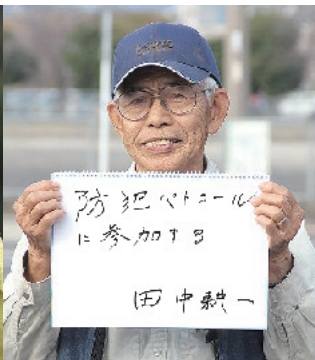 防犯パトロール
に参加する
田中耕一